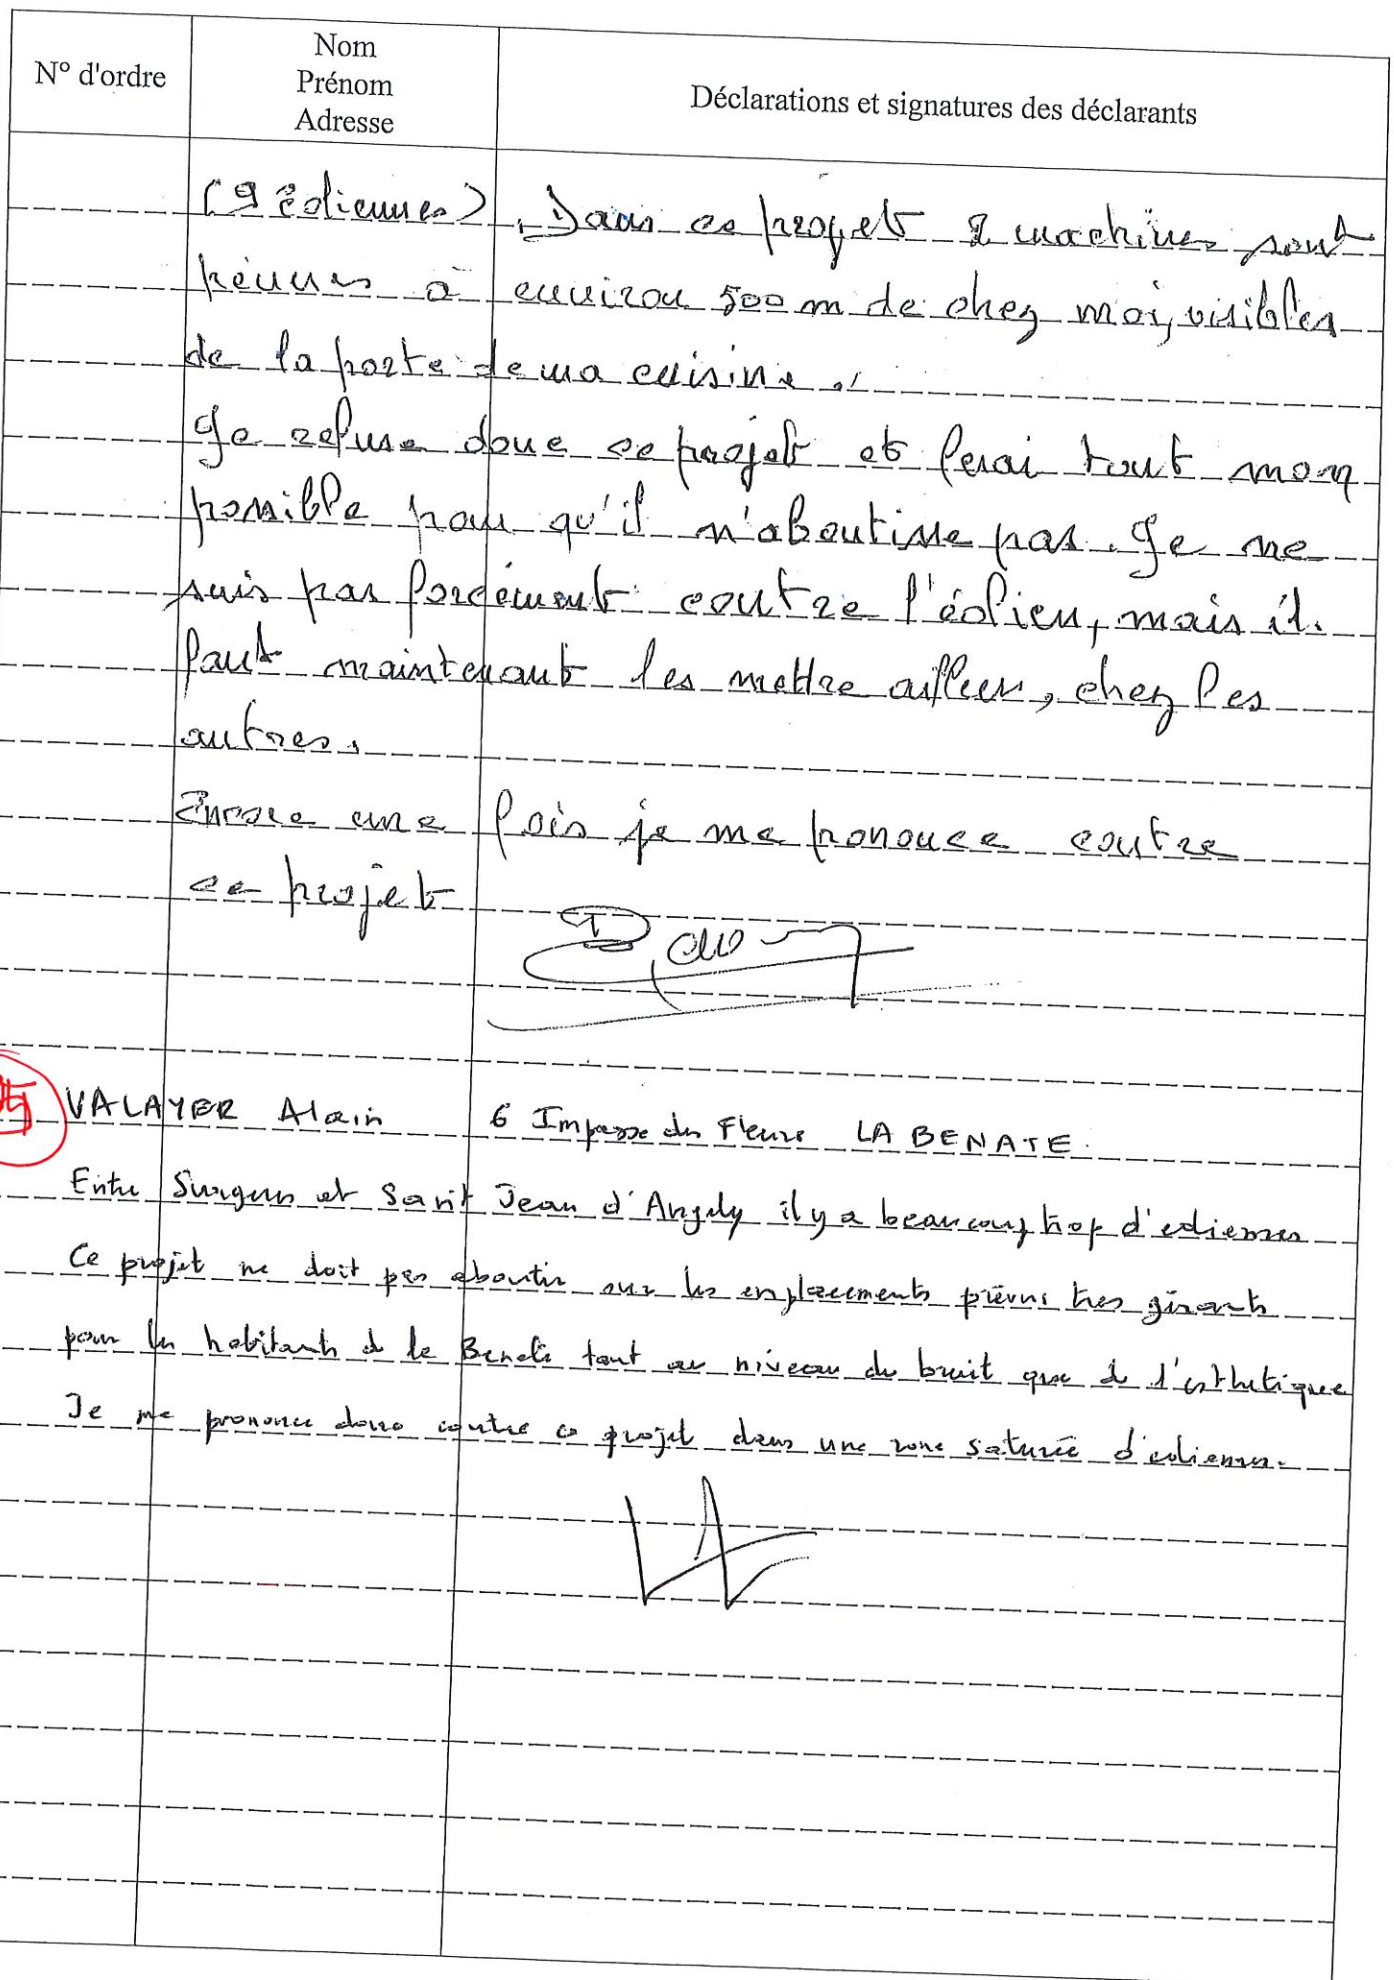 N° d'ordre
Nom
Prénom
Adresse
Déclarations et signatures des déclarants
(9 éoliennes). Dans ce projet 2 machines sont
prévues à environ 500 m de chez moi, visibles
de la porte de ma cuisine.
Je refuse donc ce projet et ferai tout mon
possible pour qu'il n'aboutisse pas. Je ne
suis pas forcément contre l'éolien, mais il
faut maintenant les mettre ailleurs, chez les
autres.
Encore une fois je me prononce contre
ce projet
VALAYER Alain 6 Impasse des Fleurs LA BENATE.
Entre Surgeres et Saint Jean d'Angely il y a beaucoup trop d'eoliennes
Ce projet ne doit pas aboutir sur les emplacements prévus tres gênants
pour les habitants de la Benate tant au niveau du bruit que de l'esthetique
Je me prononce donc contre ce projet dans une zone saturée d'eoliennes.